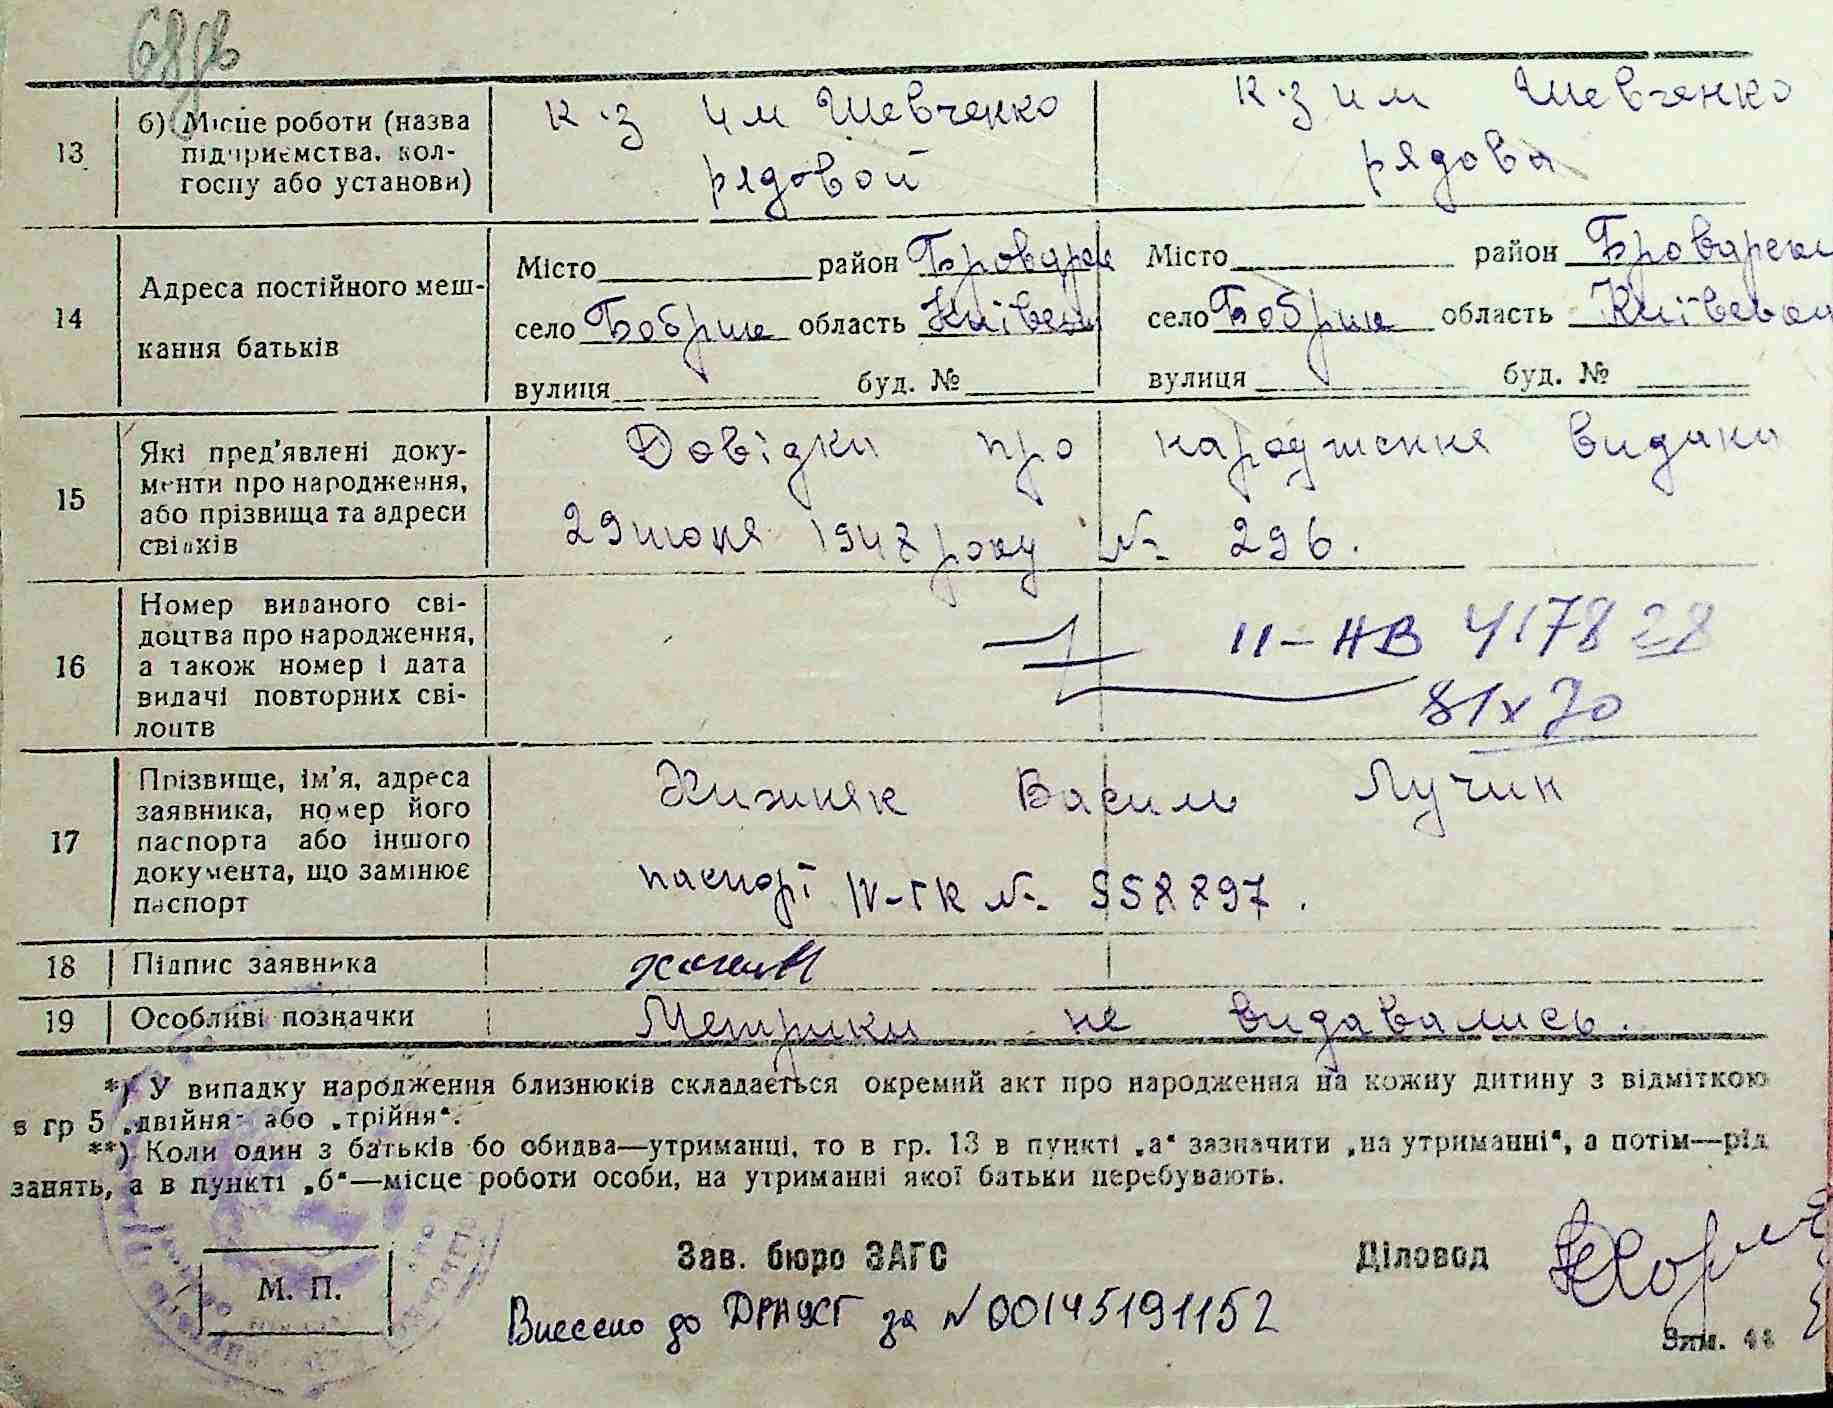 13 б) Місце роботи (назва підприємства, колгоспу або установи)
к-з им Шевченко рядовой
к-з им Шевченко рядова
14 Адреса постійного мешкання батьків
Місто район Броварск
село Бобрик область Київськ
вулиця буд. №
Місто район Броварськ
село Бобрик область Київськ
вулиця буд. №
15 Які пред'явлені документи про народження, або прізвища та адреси свідків
Довідки про народження видани
29 июня 1948 року № 296.
16 Номер виданого свідоцтва про народження, а також номер і дата видачі повторних свідоцтв
II-НВ 417828
81х70
17 Прізвище, ім'я, адреса заявника, номер його паспорта або іншого документа, що замінює паспорт
Хижняк Василь Лучич
паспорт IV-ГК № 558897.
18 Підпис заявника
19 Особливі позначки
Метрики не видавались.
*) У випадку народження близнюків складається окремий акт про народження на кожну дитину з відміткою
в гр 5 „двійня" або „трійня".
**) Коли один з батьків бо обидва—утриманці, то в гр. 13 в пункті „а" зазначити „на утриманні", а потім—рід
занять, а в пункті „б"—місце роботи особи, на утриманні якої батьки перебувають.
М. П.
Зав. бюро ЗАГС
Діловод
Внесено до ДРАЦСГ за №00145191152
Зам. 44